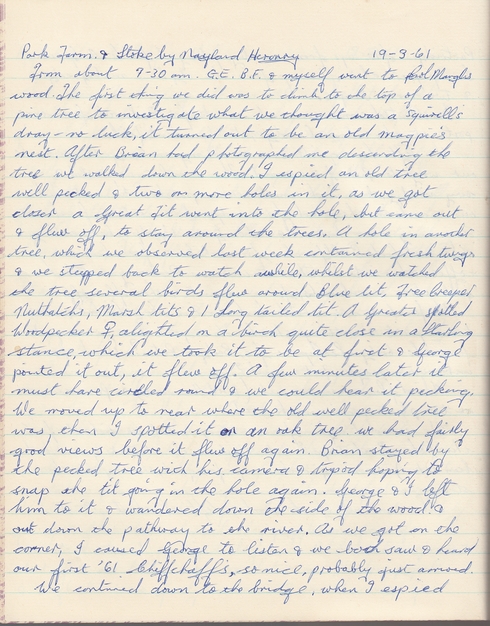 Park Farm. & Stoke by Nayland Heronry 19-3-61
From about 7-30 am. G.E. B.F. & myself went to
wood. The first thing we did was to climb to the top of a
pine tree to investigate what we thought was a squirrell's
dray - no luck, it turned out to be an old magpie's
nest. After Brian had photographed me descending the
tree we walked down the wood, I espied an old tree
well pecked & two or more holes in it, as we got
closer a Great Tit went into the hole, but came out
& flew off, to stay around the trees. A hole in another
tree, which we observed last week contained fresh twigs
& we stepped back to watch awhile, whilst we watched
the tree several birds flew around Blue tit, Treecreeper
Nuthatchs, Marsh tits & 1 Long tailed tit. A Greater spotted
Woodpecker ♀, alighted on a birch quite close in a starling
stance, which we took it to be at first & George
pointed it out, it flew off. A few minutes later it
must have circled round & we could hear it pecking.
We moved up to near where the old well pecked tree
was, then I spotted it on an oak tree we had fairly
good views before it flew off again. Brian stayed by
the pecked tree with his camera & tripod hoping to
snap the tit going in the hole again. George & I left
him to it & wandered down the side of the wood &
down the pathway to the river. As we got on the
corner, I caused George to listen & we both saw & heard
our first '61 Chiffchaffs, so nice, probably just arrived.
We continued down to the bridge, when I espied